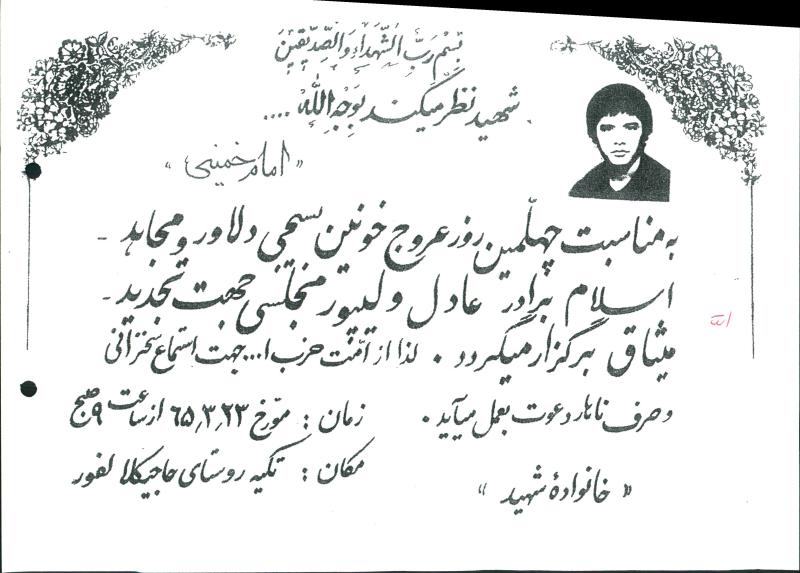 بِسْمِ رَبِّ الشُّهَداءِ وَالصِّدّیقینَ
شهید نظر میکند بوَجْهِ اللهْ ....
« امام خمینی »
به مناسبت چهلّمین روز عروج خونین بسیجی دلاور و مجاهد -
اسلام برادر عادل ولیپور مجلسی جهت تجدید -
میثاق برگزار میگردد . لذا از امّت حزب ا... جهت استماع سخنرانی
و صرف ناهار دعوت بعمل میآید .
زمان : مورّخ ۶۵,۳,۲۳ از ساعت ۹ صبح
مکان : تکیه روستای حاجیکلا لفور
« خانوادهٔ شهید »